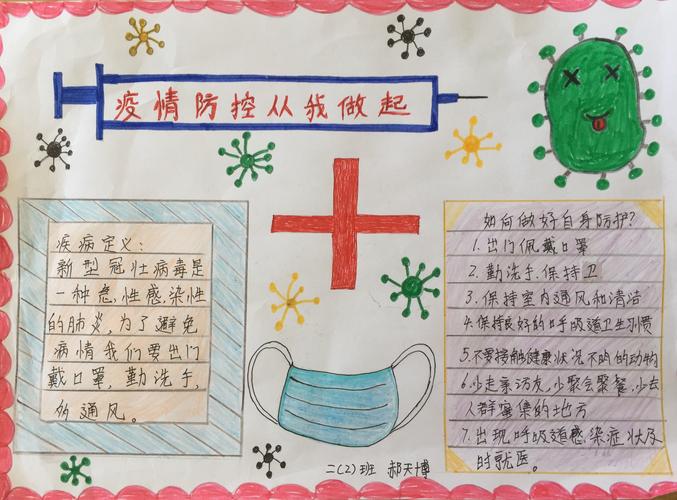 疫情防控从我做起
疾病定义：
新型冠壮病毒是
一种急，性感染性
的肺炎，为了避免
病情我们要出门
戴口罩，勤洗手，
多通风。
如何做好自身防护?
1.出门佩戴口罩
2.勤洗手.保持卫
3.保持室内通风和清洁
4.保持良好的呼吸道卫生习惯
5.不要接触健康状况不明的动物
6.少走亲访友，少聚会聚餐，少去
人群密集的地方
7.出现呼吸道感染症状及
时就医。
二(2)班 郝天博